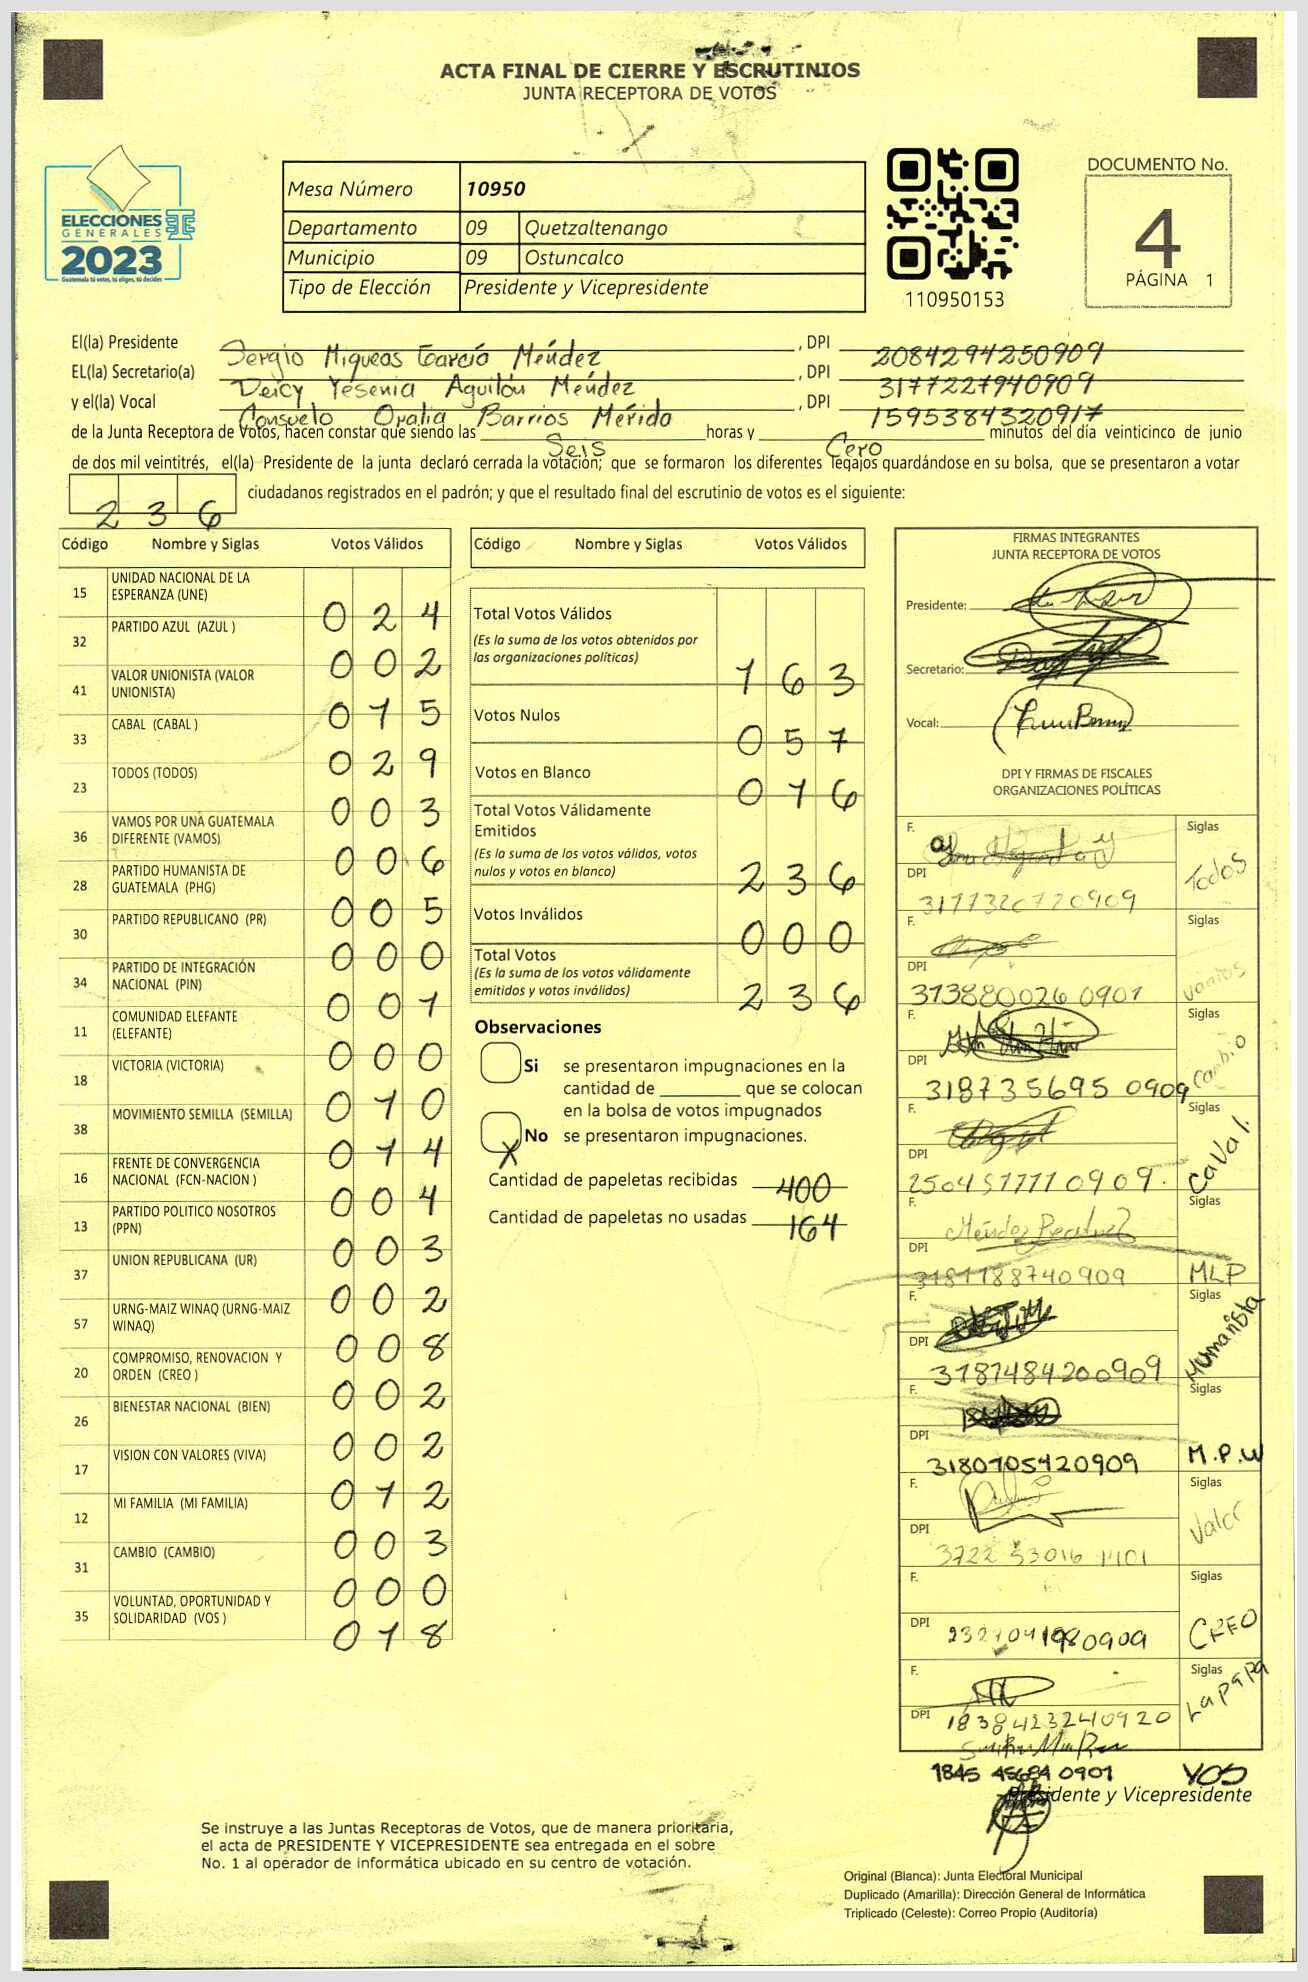 ACTA FINAL DE CIERRE Y ESCRUTINIOS
JUNTA RECEPTORA DE VOTOS
ELECCIONES
GENERALES
2023
Guatemala tú votas, tú eliges, tú decides
Mesa Número 10950
Departamento 09 Quetzaltenango
Municipio 09 Ostuncalco
Tipo de Elección Presidente y Vicepresidente
110950153
DOCUMENTO No.
4
PÁGINA 1
El(la) Presidente Sergio Miqueas García Méndez, DPI 2084294250909
EL(la) Secretario(a) Deicy Yesenia Aguilón Méndez, DPI 3177227940909
y el(la) Vocal Consuelo Oralia Barrios Mérido, DPI 1595384320917
de la Junta Receptora de Votos, hacen constar que siendo las Seis horas y Cero minutos del día veinticinco de junio
de dos mil veintitrés, el(la) Presidente de la junta declaró cerrada la votación; que se formaron los diferentes legajos guardándose en su bolsa, que se presentaron a votar
236 ciudadanos registrados en el padrón; y que el resultado final del escrutinio de votos es el siguiente:
Código Nombre y Siglas Votos Válidos
15 UNIDAD NACIONAL DE LA ESPERANZA (UNE) 024
32 PARTIDO AZUL (AZUL ) 002
41 VALOR UNIONISTA (VALOR UNIONISTA) 015
33 CABAL (CABAL ) 029
23 TODOS (TODOS) 003
36 VAMOS POR UNA GUATEMALA DIFERENTE (VAMOS) 006
28 PARTIDO HUMANISTA DE GUATEMALA (PHG) 005
30 PARTIDO REPUBLICANO (PR) 000
34 PARTIDO DE INTEGRACIÓN NACIONAL (PIN) 001
11 COMUNIDAD ELEFANTE (ELEFANTE) 000
18 VICTORIA (VICTORIA) 010
38 MOVIMIENTO SEMILLA (SEMILLA) 014
16 FRENTE DE CONVERGENCIA NACIONAL (FCN-NACION ) 004
13 PARTIDO POLITICO NOSOTROS (PPN) 003
37 UNION REPUBLICANA (UR) 002
57 URNG-MAIZ WINAQ (URNG-MAIZ WINAQ) 008
20 COMPROMISO, RENOVACION Y ORDEN (CREO ) 002
26 BIENESTAR NACIONAL (BIEN) 002
17 VISION CON VALORES (VIVA) 012
12 MI FAMILIA (MI FAMILIA) 003
31 CAMBIO (CAMBIO) 000
35 VOLUNTAD, OPORTUNIDAD Y SOLIDARIDAD (VOS ) 018
Código Nombre y Siglas Votos Válidos
Total Votos Válidos 163
(Es la suma de los votos obtenidos por
las organizaciones políticas)
Votos Nulos 057
Votos en Blanco 016
Total Votos Válidamente
Emitidos 236
(Es la suma de los votos válidos, votos
nulos y votos en blanco)
Votos Inválidos 000
Total Votos 236
(Es la suma de los votos válidamente
emitidos y votos inválidos)
Observaciones
Si se presentaron impugnaciones en la
cantidad de ________ que se colocan
en la bolsa de votos impugnados
X No se presentaron impugnaciones.
Cantidad de papeletas recibidas 400
Cantidad de papeletas no usadas 164
FIRMAS INTEGRANTES
JUNTA RECEPTORA DE VOTOS
Presidente:
Secretario:
Vocal:
DPI Y FIRMAS DE FISCALES
ORGANIZACIONES POLÍTICAS
F. Siglas Todos
DPI 3177320720909
F. Siglas Vamos
DPI 313880026 0901
F. Siglas Cambio
DPI 318735695 0909
F. Siglas CaVal.
DPI 2504517710909.
F. Méndez Siglas MLP
DPI 3181188740909
F. Siglas Humanista
DPI 3181484200909
F. Siglas M.P.W
DPI 3180705420909
F. Siglas Valor
DPI 3722 53016 1401
F. Siglas CREO
DPI
F. Siglas La papa
DPI 1838423240920
1845 45684 0901 VOS
Presidente y Vicepresidente
Se instruye a las Juntas Receptoras de Votos, que de manera prioritaria,
el acta de PRESIDENTE Y VICEPRESIDENTE sea entregada en el sobre
No. 1 al operador de informática ubicado en su centro de votación.
Original (Blanca): Junta Electoral Municipal
Duplicado (Amarilla): Dirección General de Informática
Triplicado (Celeste): Correo Propio (Auditoría)